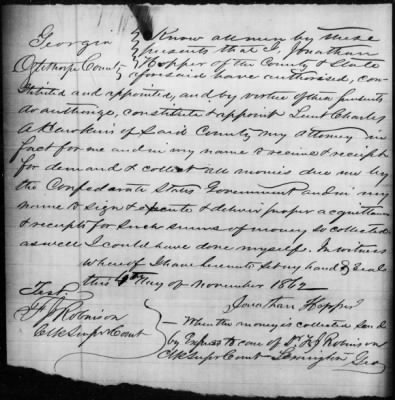 Georgia } Know all men by these
Oglethorpe County } presents that I, Jonathan
Hopper of the County & State
aforesaid have authorised, con-
stituted and appointed, and by virtue of these presents
do authorize, constitute & appoint Lieut Charles
A Hawkins of said County my attorney in
fact for me and in my name to receive & receipt
for demand & collect all monies due me by
the Confederate States Government and in my
name to sign & execute & deliver proper acquittances
& receipts for such sums of money so collected
as well I could have done myself. In witness
whereof I have hereunto set my hand & Seal
this 4th day of November 1862
Test
Jonathan Hopper
F J Robinson
Clk Supr Court
— When the money is collected send
by Express to care of Dr F J Robinson
Clk Supr Court Lexington Geo